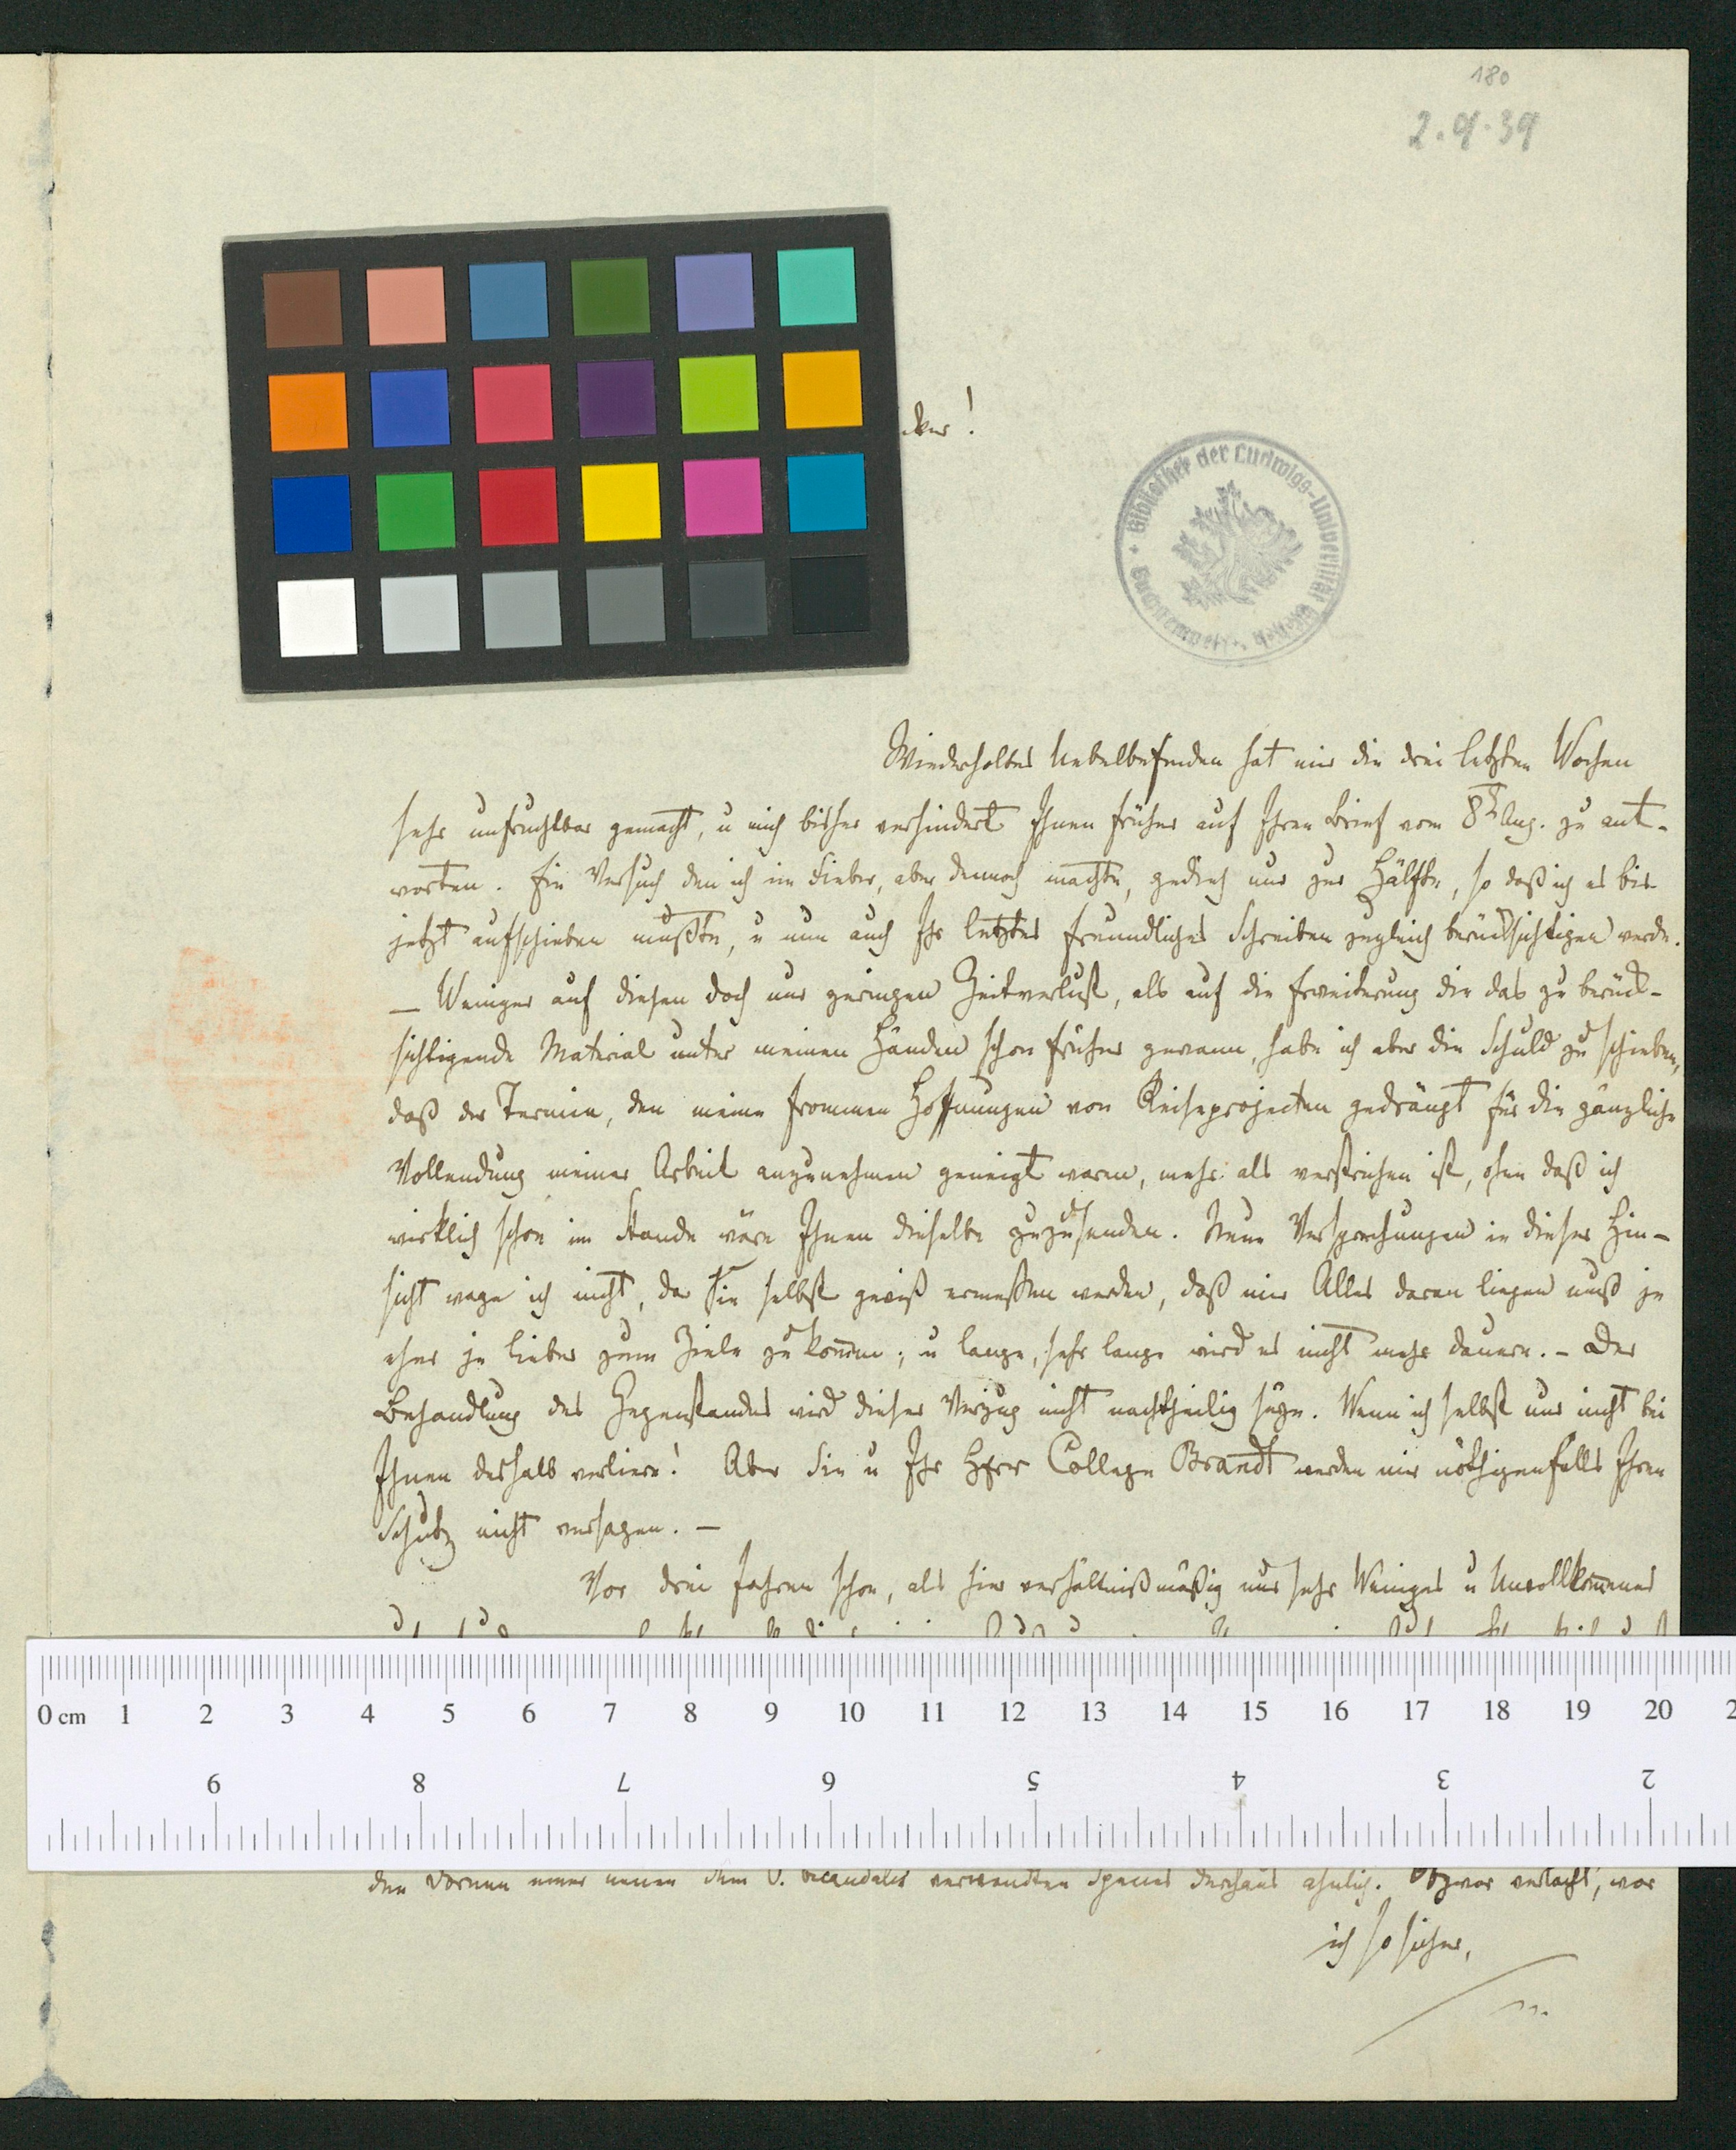 180
2.9.39
Bibliothek der Ludwigs-Universität Giessen
Wiederholtes Uebelbefinden hat mir die drei letzten Wochen
sehr unfruchtbar gemacht, u mich bisher verhindert Ihnen früher auf Ihren Brief vom 8t Aug. zu ant-
worten. Ein Versuch den ich im Fieber, aber dennoch machte, gedieh nur zur Hälfte, so daß ich es bis
jetzt aufschieben mußte, u nun auch Ihr letztes freundliches Schreiben zugleich berücksichtigen werde.
— Weniger auf diesen doch nur geringen Zeitverlust, als auf die Erweiterung die das zu berück-
sichtigende Material unter meinen Händen schon früher gewann, habe ich aber die Schuld zu schieben,
daß der Termin, den meine frommen Hoffnungen von Reiseprojecten gedrängt für die gänzliche
Vollendung meiner Arbeit anzunehmen geneigt waren, mehr als verstrichen ist, ohne daß ich
wirklich schon im Stande wäre Ihnen dieselbe zuzusenden. Neue Versprechungen in dieser Hin-
sicht wage ich nicht, da Sie selbst gewiß ermessen werden, daß mir Alles daran liegen muß je
eher je lieber zum Ziele zu kommen; u lange, sehr lange wird es nicht mehr dauern. – Der
Behandlung des Gegenstandes wird dieser Verzug nicht nachtheilig seyn. Wenn ich selbst nur nicht bei
Ihnen deshalb verliere! Aber Sie u Ihr Herr College Brandt werden mir nöthigenfalls Ihren
Schutz nicht versagen. —
Vor drei Jahren schon, als hier verhältnißmäßig nur sehr Weniges u Unvollkommenes
0 cm 1 2 3 4 5 6 7 8 9 10 11 12 13 14 15 16 17 18 19 20
9 8 7 6 5 4 3 2
den Dornen einer neuen dem verwandten Species durchaus ähnlich. war
ich so sicher,